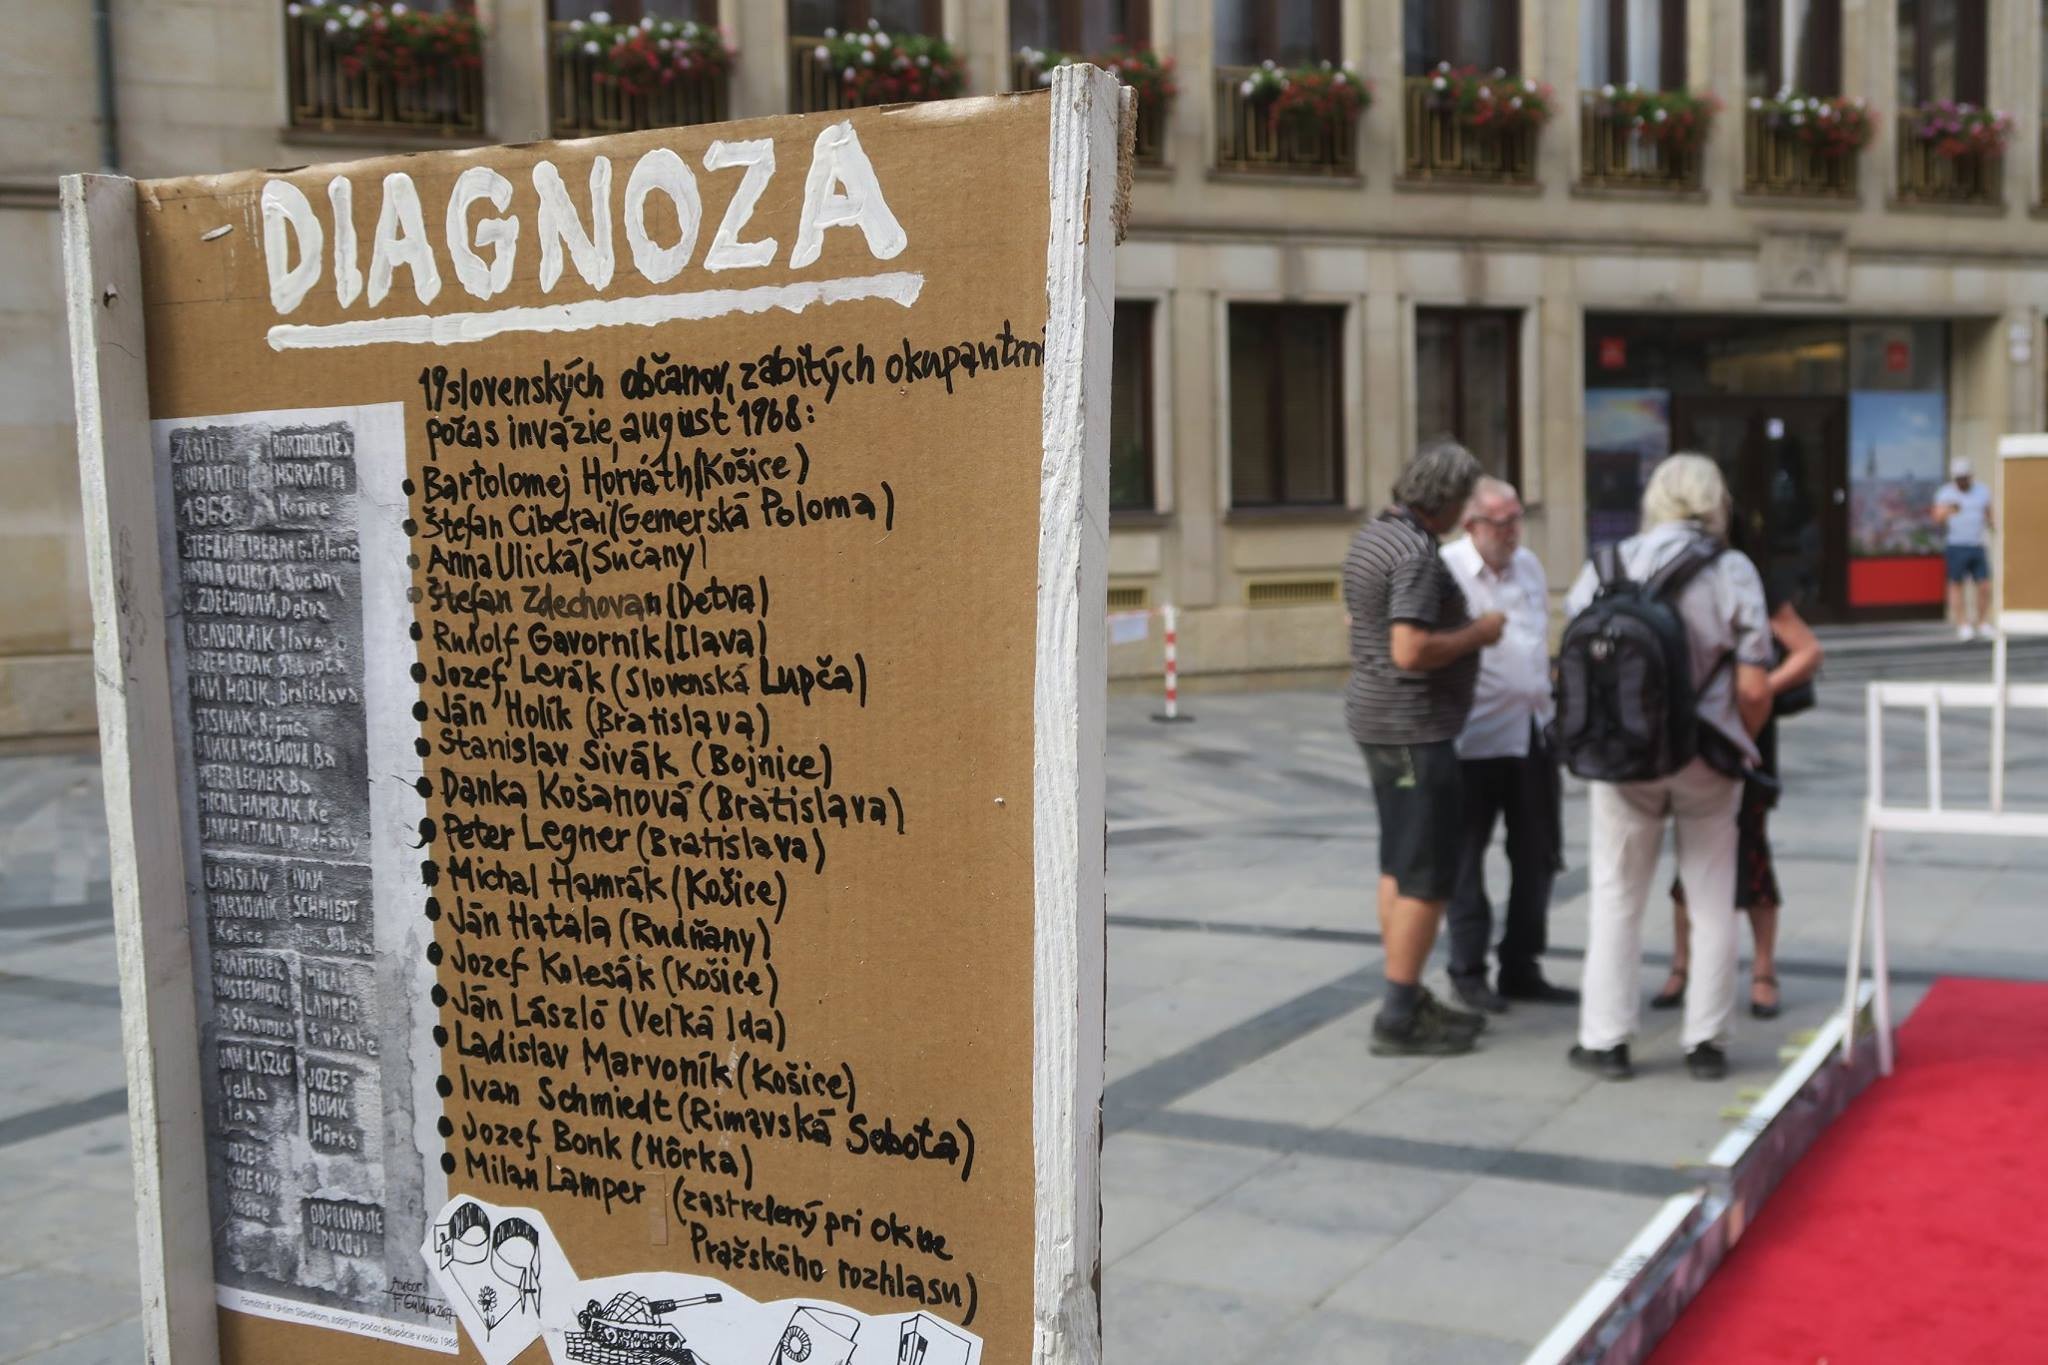 DIAGNOZA
19 slovenských občanov, zabitých okupantmi
počas invázie, august 1968:
Bartolomej Horváth (Košice)
Štefan Ciberai (Gemerská Poloma)
Anna Ulická (Sučany)
Štefan Zdechovan (Detva)
Rudolf Gavorník (Ilava)
Jozef Levák (Slovenská Lupča)
Ján Holík (Bratislava)
Stanislav Sivák (Bojnice)
Danka Košanová (Bratislava)
Peter Legner (Bratislava)
Michal Hamrák (Košice)
Ján Hatala (Rudňany)
Jozef Kolesák (Košice)
Ján László (Veľká Ida)
Ladislav Marvoník (Košice)
Ivan Schmiedt (Rimavská Sobota)
Jozef Bonk (Hôrka)
Milan Lamper (zastrelený pri okne
Pražského rozhlasu)
ZABITÍ
1968
BARTOLOMEJ
HORVÁTH
Košice
ŠTEFAN CIBERAI G. Poloma
ANNA ULICKÁ, Sučany
Š. ZDECHOVAN, Detva
R. GAVORNÍK, Ilava
JÁN HOLÍK, Bratislava
ST. SIVÁK, Bojnice
DANKA KOŠANOVÁ, Ba
PETER LEGNER, Ba
MICHAL HAMRÁK, Ke
JÁN HATALA, Rudňany
LADISLAV
MARVONÍK
Košice
IVAN
SCHMIEDT
Rim. Sobota
FRANTIŠEK
MILAN
LAMPER
† v Prahe
JÁN LÁSZLÓ
Veľká
Ida
JOZEF
BONK
Hôrka
JOZEF
KOLESÁK
Košice
ODPOČÍVAJTE
V POKOJI
Autor:
Pamätník 19-tim Slovákom, zabitým počas okupácie v roku 1968